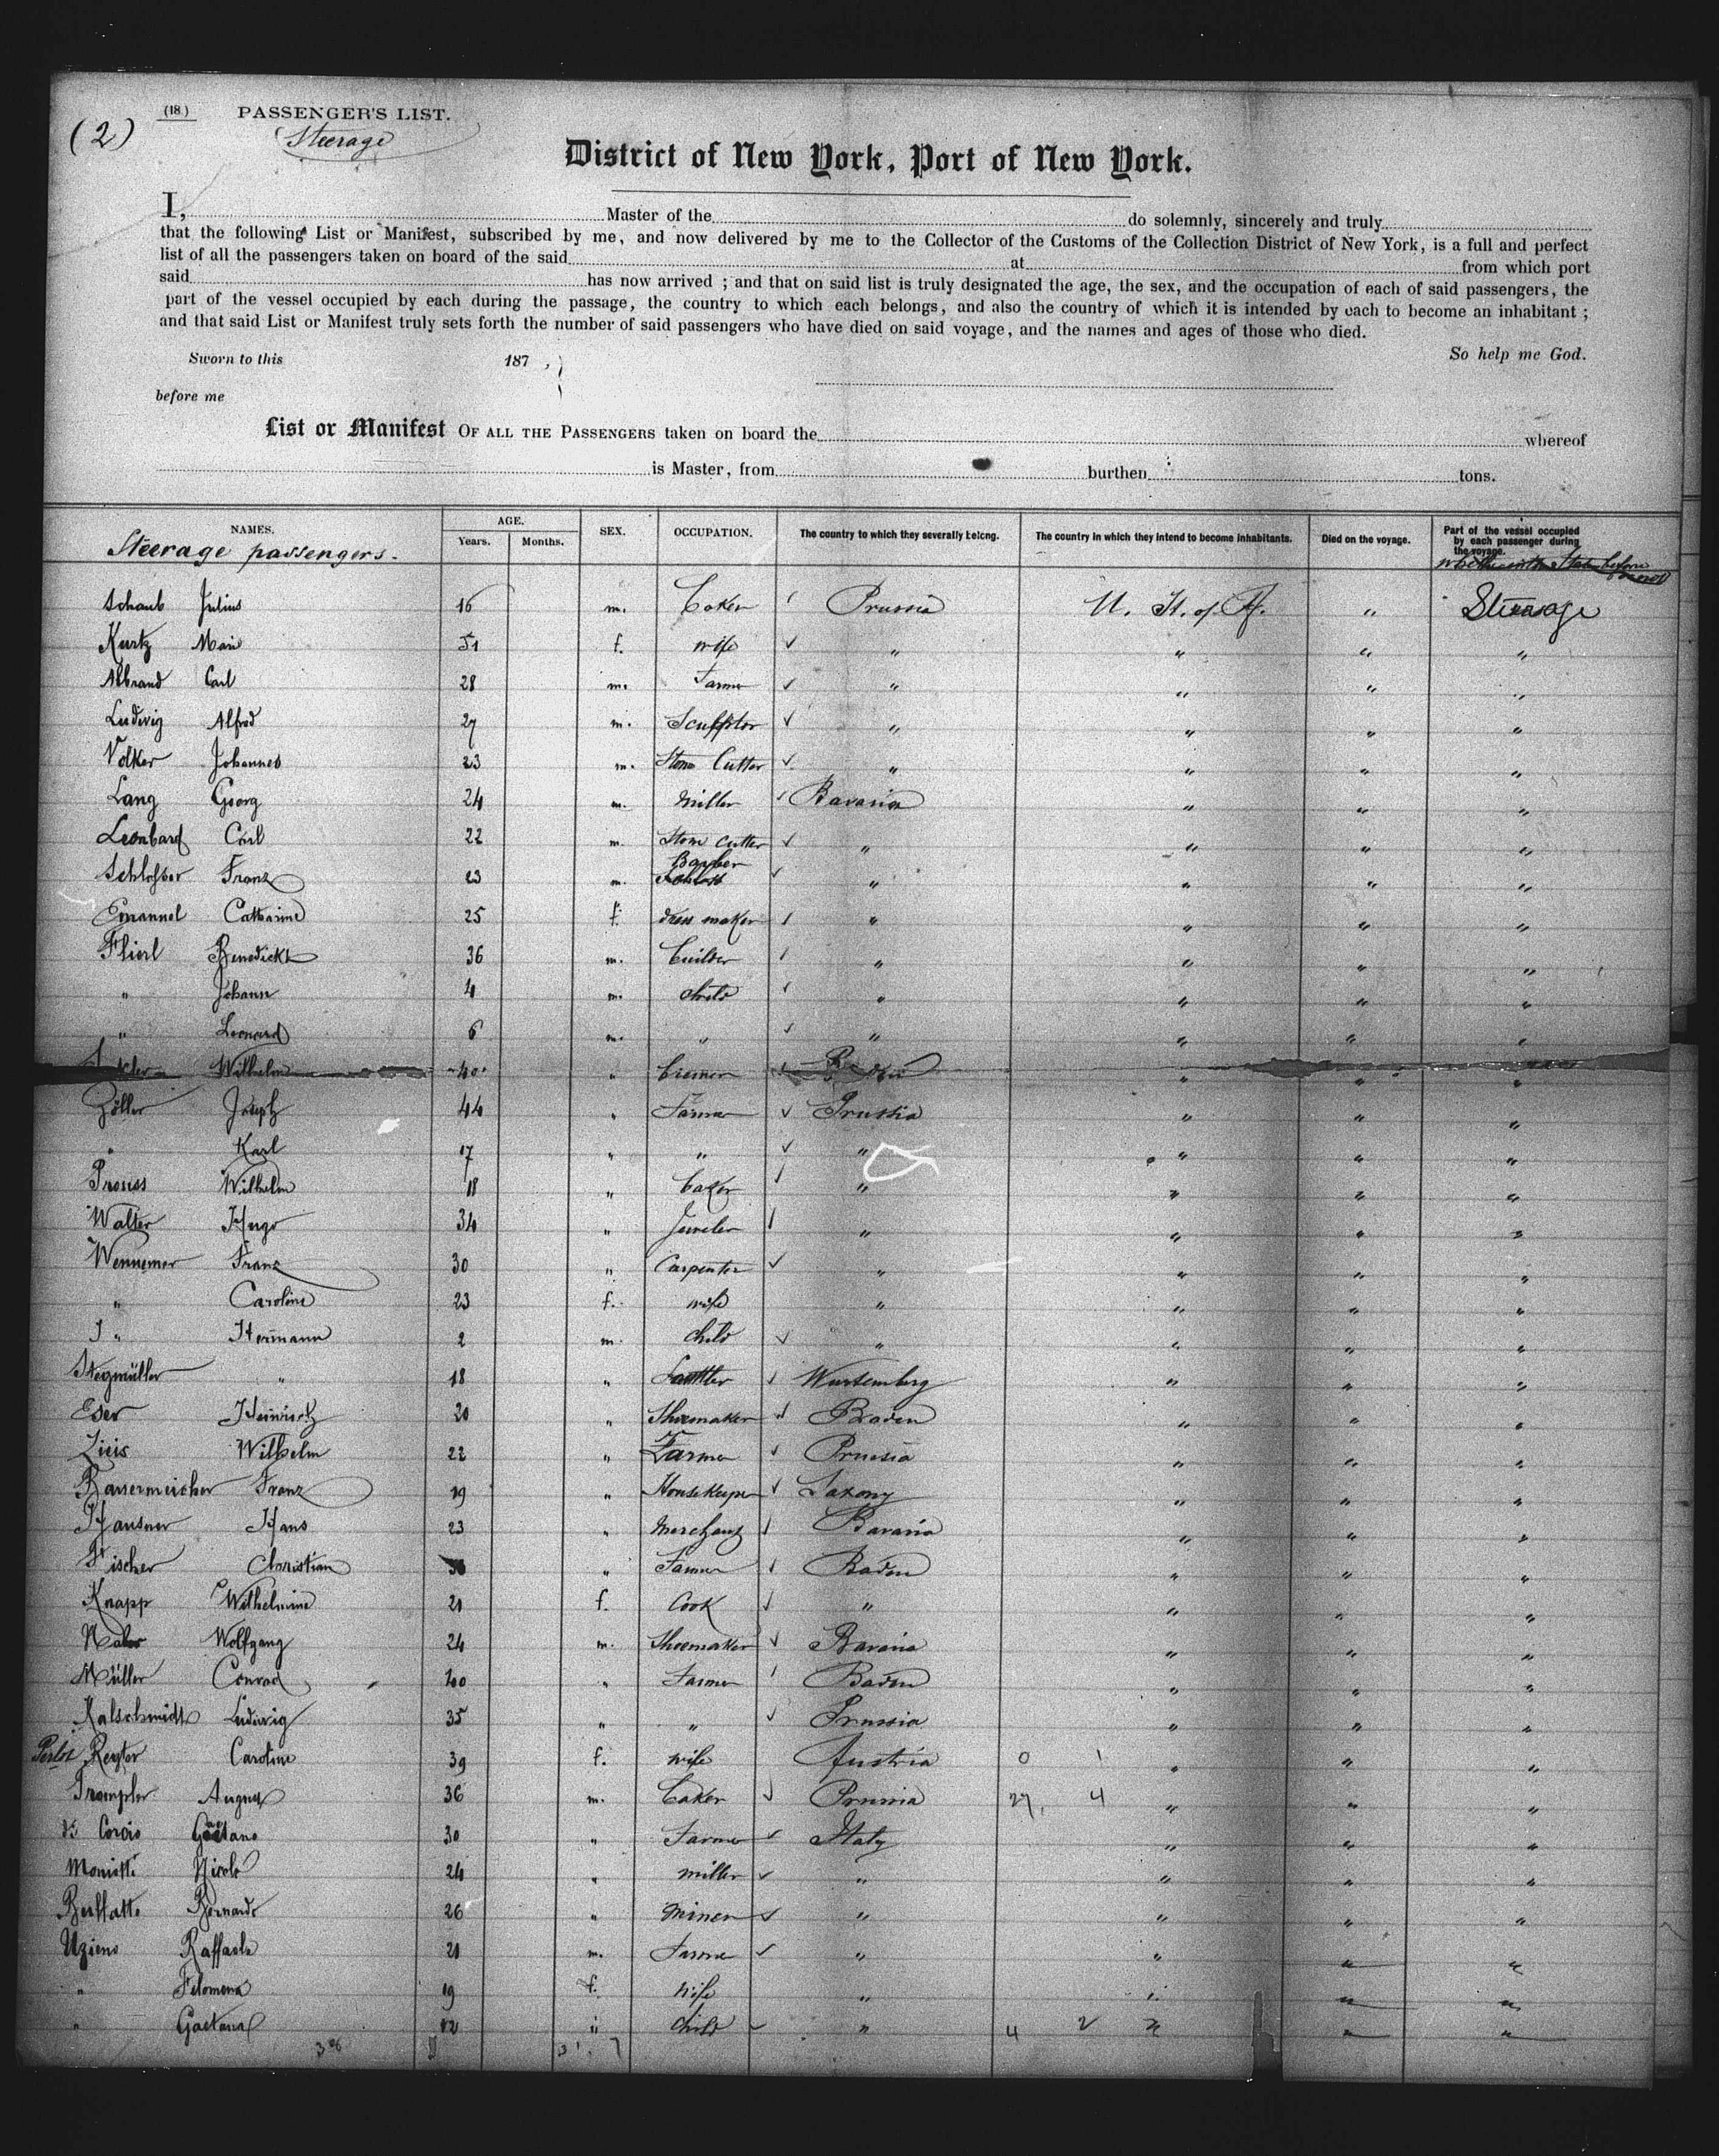 (2)
(18) PASSENGER'S LIST.
Steerage
District of New York, Port of New York.
I, Master of the do solemnly, sincerely and truly
that the following List or Manifest, subscribed by me, and now delivered by me to the Collector of the Customs of the Collection District of New York, is a full and perfect
list of all the passengers taken on board of the said at from which port
said has now arrived ; and that on said list is truly designated the age, the sex, and the occupation of each of said passengers, the
part of the vessel occupied by each during the passage, the country to which each belongs, and also the country of which it is intended by each to become an inhabitant ;
and that said List or Manifest truly sets forth the number of said passengers who have died on said voyage, and the names and ages of those who died.
Sworn to this 187 , So help me God.
before me
List or Manifest OF ALL THE PASSENGERS taken on board the whereof
is Master, from burthen tons.
NAMES. AGE. Years. Months. SEX. OCCUPATION. The country to which they severally belong. The country in which they intend to become inhabitants. Died on the voyage. Part of the vessel occupied by each passenger during the voyage.
Steerage passengers.
Schaub Julius 16 m. Baker Prussia U. St. of A. " Steerage
Kurtz Marie 51 f. wife " " " "
Albrand Carl 28 m. Farmer " " " "
Ludwig Alfred 27 m. Sculptor " " " "
Volker Johannes 23 m. Stone Cutter " " " "
Lang Georg 24 m. Miller Bavaria " " "
Leonhard Carl 22 m. Stone Cutter " " " "
Schlosser Franz 23 m. Barber " " " "
Emannel Catharine 25 f. dress maker " " " "
Flierl Benedickt 36 m. Builder " " " "
" Johann 4 m. child " " " "
" Leonard 6 m. " " " " "
Wilhelm 40 " Baden " " "
Zöller Joseph 44 " Farmer Prussia " " "
" Karl 17 " " " " " "
Preuss Wilhelm 18 " Baker " " " "
Walter Hugo 34 " Jeweler " " " "
Wennemer Franz 30 " Carpenter " " " "
" Caroline 23 f. wife " " " "
" Hermann 2 m. child " " " "
Stegmüller " 18 " Wurtemberg " " "
Eser Heinrich 20 " Shoemaker Baden " " "
Wilhelm 22 " Farmer Prussia " " "
Franz 19 " Housekeeper Saxony " " "
Hausner Hans 23 " Merchant Bavaria " " "
Fischer Christian " Farmer Baden " " "
Knapp Wilhelmine 21 f. Cook " " " "
Wolfgang 24 m. Shoemaker Bavaria " " "
Müller Conrad 40 " Farmer Baden " " "
Kalschmidt Ludwig 35 " " Prussia " " "
Caroline 39 f. wife Austria 0 1 " " "
Trompler August 36 m. Baker Prussia 27, 4 " " "
Gaetano 30 " Farmer Italy " " "
Nicola 24 " miller " " " "
Bernardo 26 " miner " " " "
Raffaele 21 m. Farmer " " " "
" Filomena 19 f. wife " " " "
" Gaetana 12 " child " 4 2 " " "
38